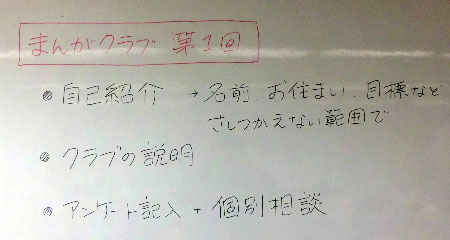 まんがクラブ 第1回
● 自己紹介 → 名前、お住まい、目標など
さしつかえない範囲で
● クラブの説明
● アンケート記入 + 個別相談